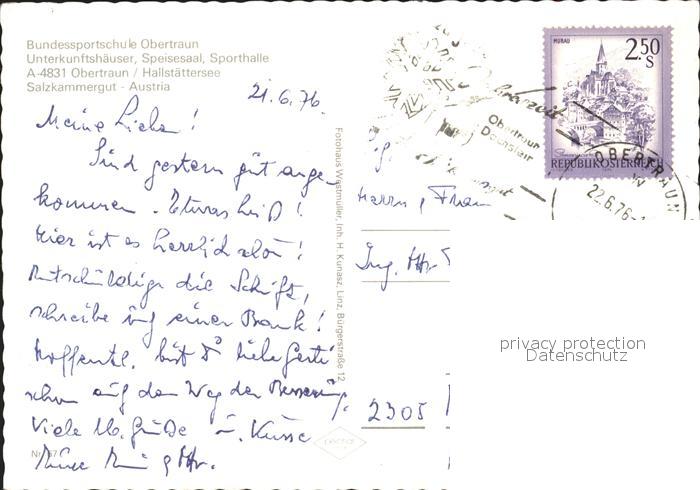 Bundessportschule Obertraun
Unterkunftshäuser, Speisesaal, Sporthalle
A-4831 Obertraun / Hallstättersee
Salzkammergut - Austria
21.6.76.
Meine Lieben!
Sind gestern gut ange
kommen. Etwas heiß!
Hier ist es herrlich schön!
Entschuldige die Schrift,
schreibe auf einer Bank!
Hoffentl. bist Du liebe Gerti
schon auf dem Weg der Besserung.
Viele lb. Grüße u. Küsse
Nr. 67
Fotohaus Westmüller, Inh. H. Kunasz, Linz, Bürgerstraße 12
MURAU
2.50
S
REPUBLIK ÖSTERREICH
Obertraun
Dachstein
OBERTRAUN
22.6.76
Herrn u. Frau
Ing.
2305
privacy protection
Datenschutz